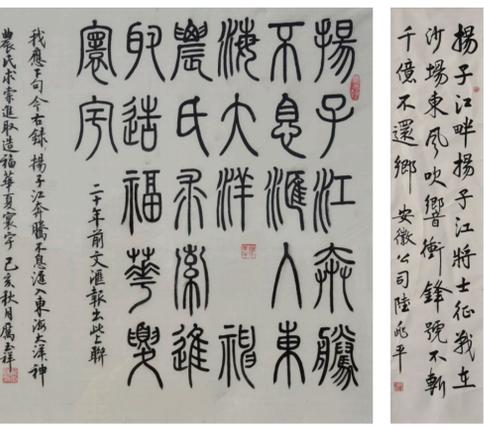 揚子江奔騰
不息滙入東
海大洋 神
農氏求索進
取造福華夏
寰宇
二十年前文滙報出此上聯
我應下句今右録揚子江奔騰不息滙入東海大洋神
農氏求索進取造福華夏寰宇 己亥秋月厲玉祥
揚子江畔揚子江將士征戰在
沙場東風吹響衝鋒號不斬
千億不還鄉 安徽公司陸兆平